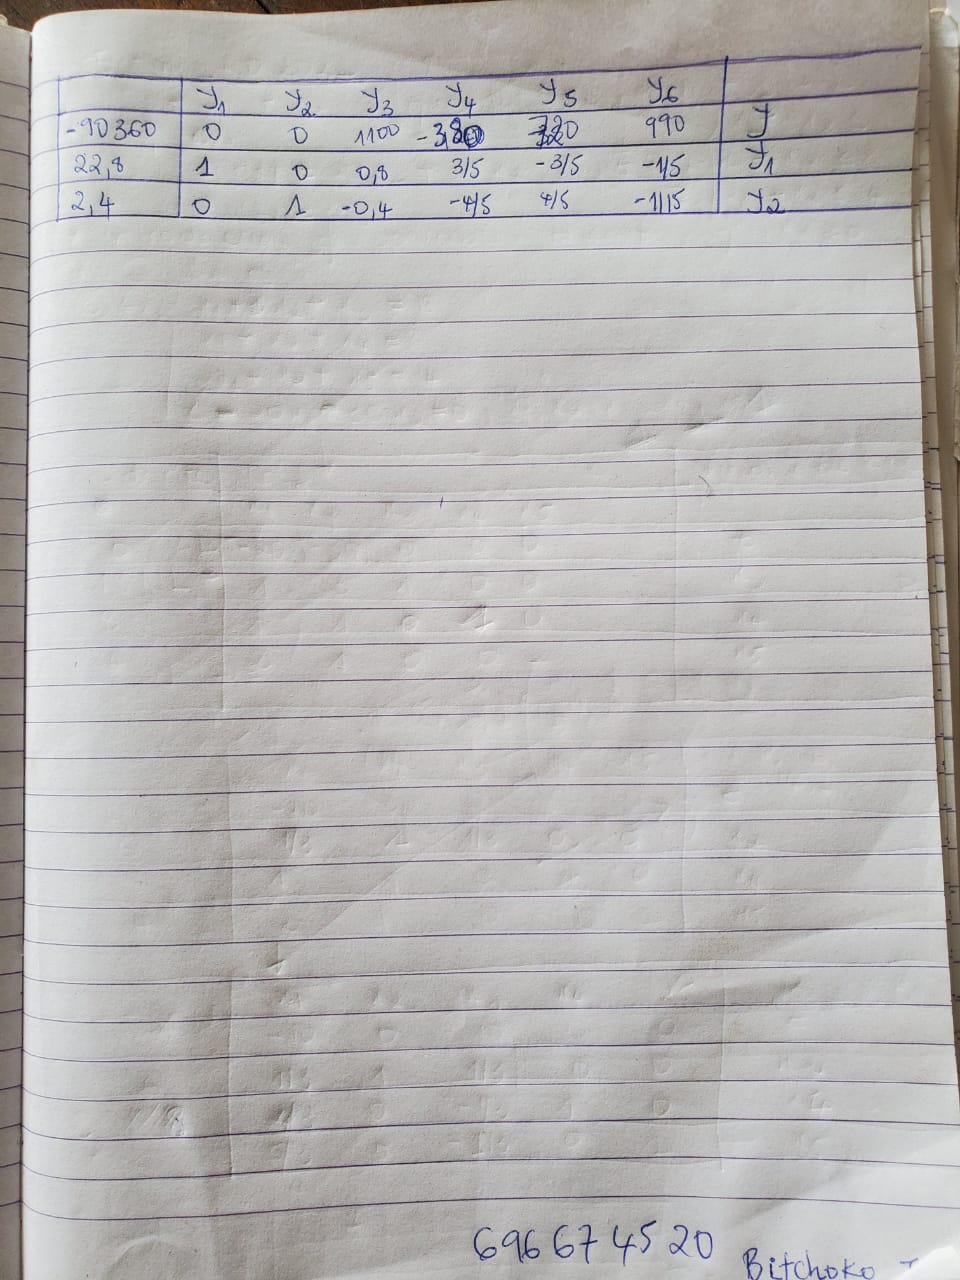 y1 y2 y3 y4 y5 y6
-90360 0 0 1100 990 y
22,8 1 0 0,8 3/5 -3/5 -1/5 y1
2,4 0 1 -0,4 -4/5 4/5 -1/15 y2
696674520
Bitchoko